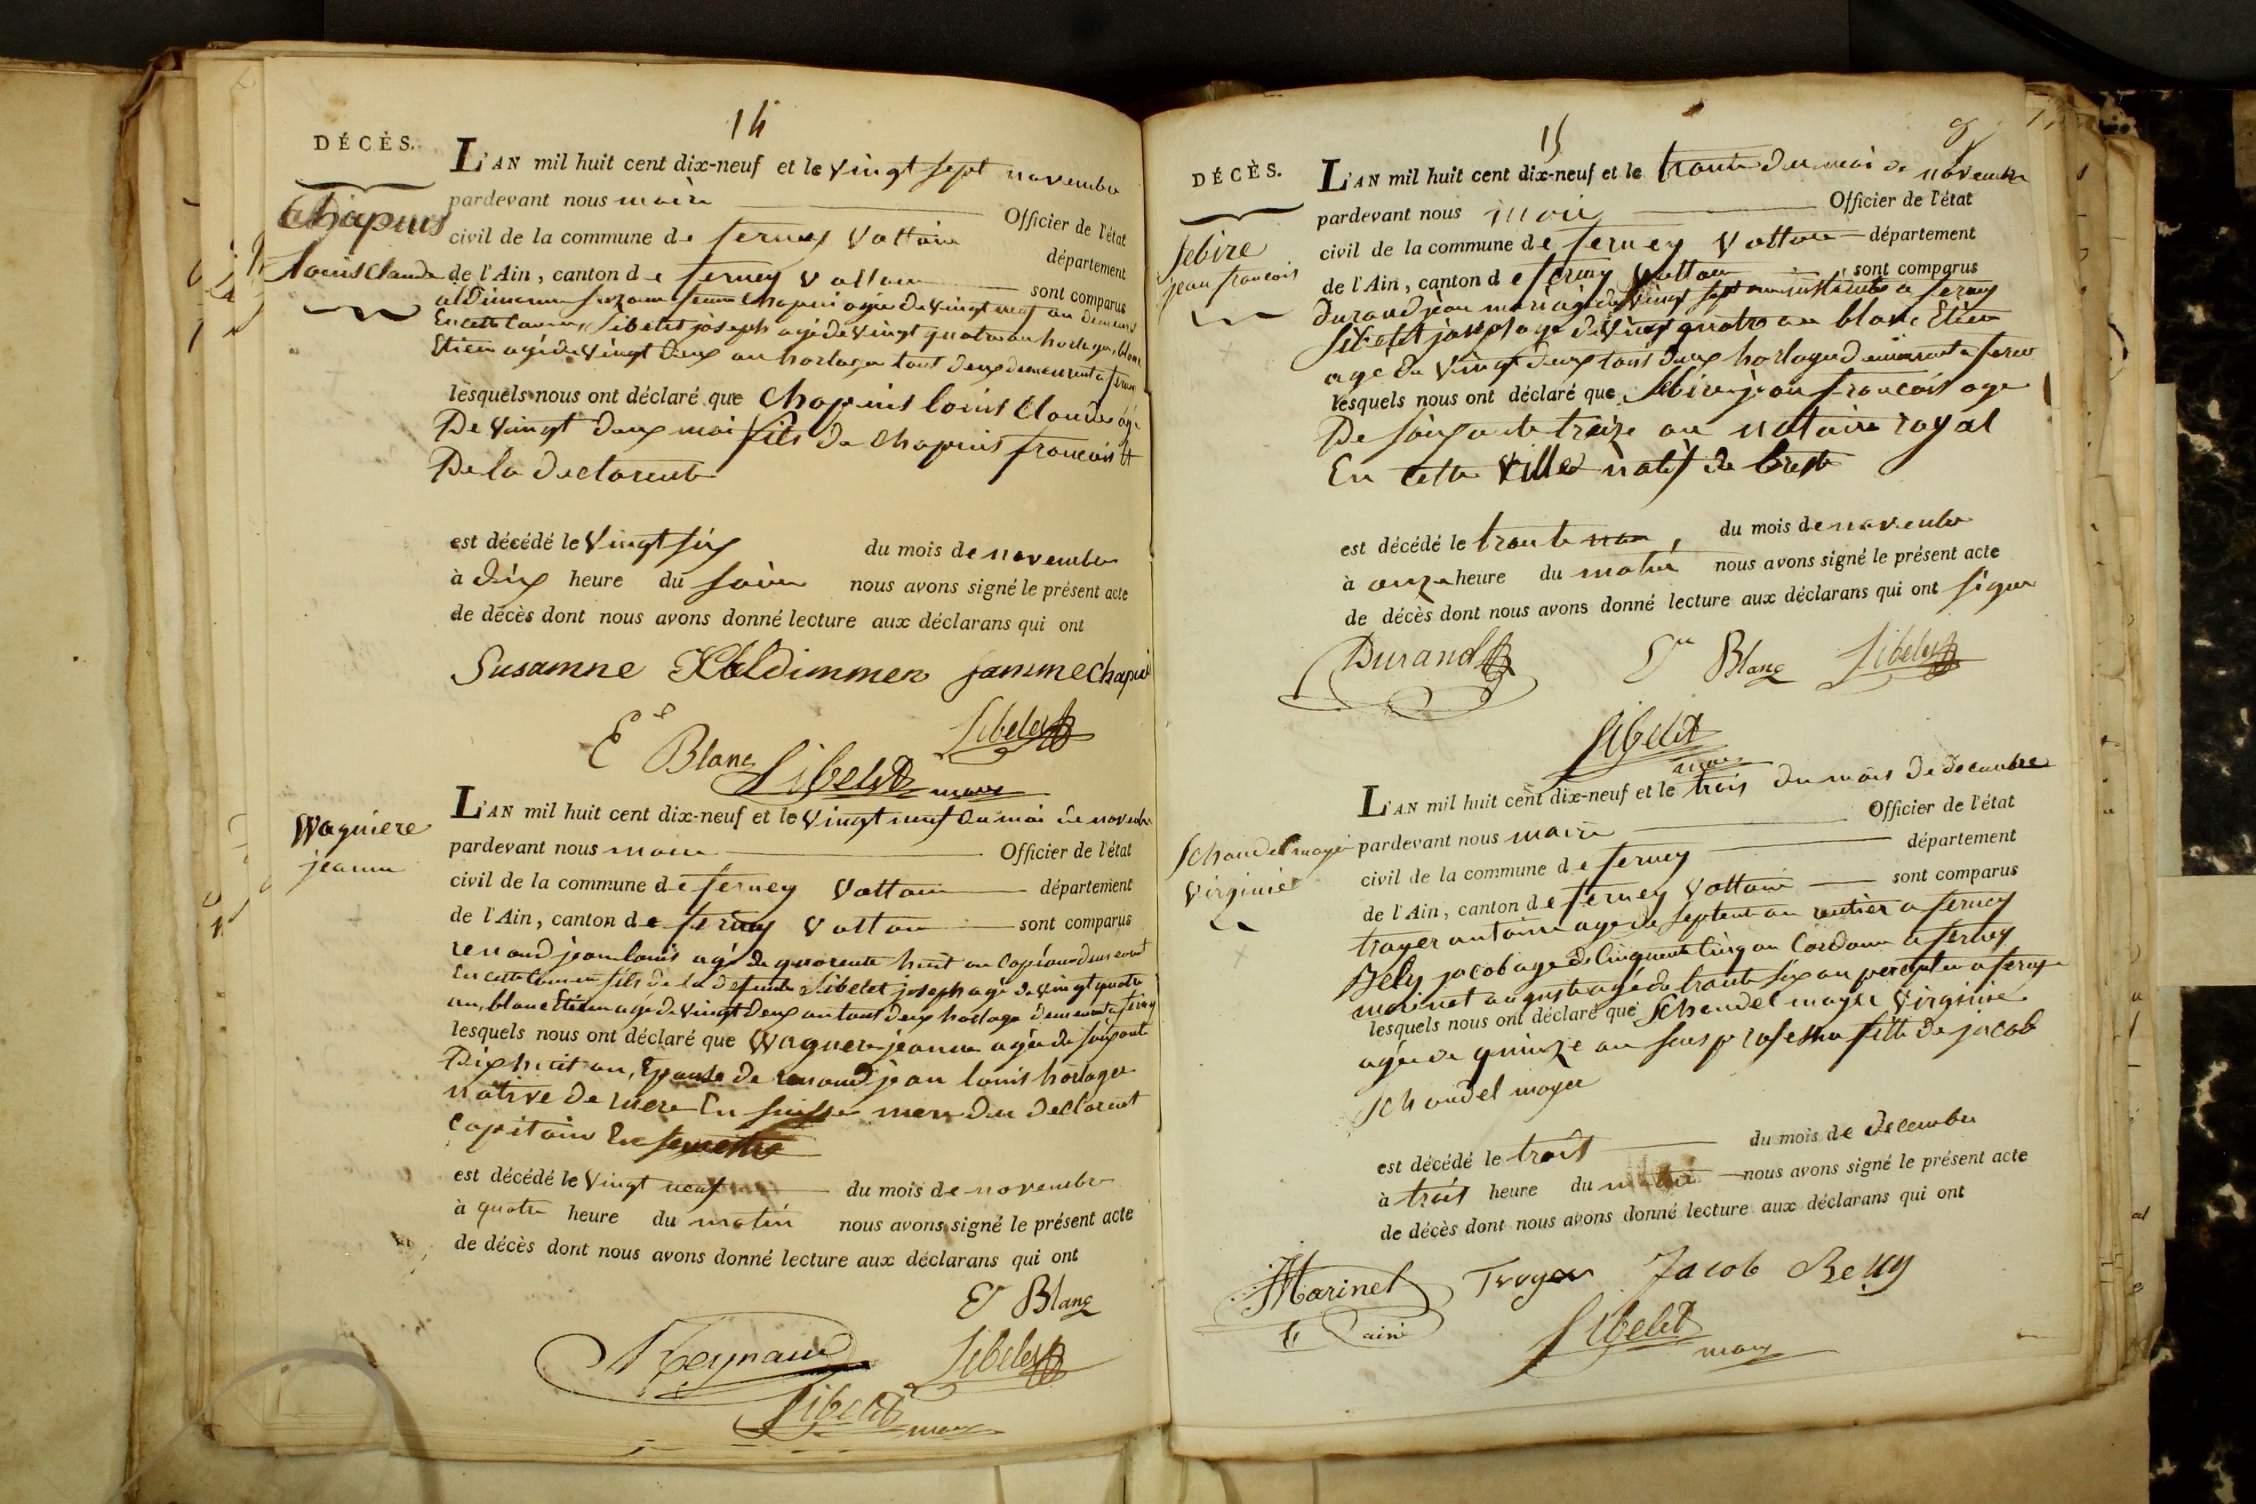 14
DÉCÈS.
Chapuis
Louis Claude
L'AN mil huit cent dix-neuf et le vingt sept novembre
pardevant nous maire Officier de l'état
civil de la commune de ferney Voltaire département
de l'Ain, canton de ferney Voltaire sont comparus
aldimenn suzanne femme chapuis agée de vingt neuf an demeurant
En cette Commune, Sibelet joseph agé de vingt quatre an horloger, blanc
Etien agé de vingt deux an horloger tout deux demeurent a ferney
lesquels nous ont déclaré que Chapuis Louis Claude agé
De vingt deux moi fils de Chapuis francois et
De la declarente
est décédé le vingt six du mois de novembre
à dix heure du soire nous avons signé le présent acte
de décès dont nous avons donné lecture aux déclarans qui ont
Susamne Haldimmen famme chapui
Et Blanc Sibelet
Sibelet maire
Wagniere
jeanne
L'AN mil huit cent dix-neuf et le vingt neuf du moi de novembre
pardevant nous maire Officier de l'état
civil de la commune de ferney Voltaire département
de l'Ain, canton de ferney Voltaire sont comparus
renaud jean louis agé de quarente huit an Capitaine demeurant
En cette Commune fils de la defunte Sibelet joseph agé de vingt quatre
an, blanc Etienn agé de vingt deux an tout deux horloge demeurent a ferney
lesquels nous ont déclaré que Wagnere jeanne agée de soixante
Dix huit an, Epouse de renaud jean louis horloger
native de ruere En suisse mere du declarent
Capitaine En
est décédé le vingt neuf du mois de novembre
à quatre heure du matin nous avons signé le présent acte
de décès dont nous avons donné lecture aux déclarans qui ont
Et Blanc
Reynaud Sibelet
Sibelet maire
15
DÉCÈS.
Sebire
jean francois
L'AN mil huit cent dix-neuf et le trante du moi de novembre
pardevant nous maire Officier de l'état
civil de la commune de ferney Voltaire département
de l'Ain, canton de ferney Voltaire sont comparus
Durand jean mari agé de vingt sept an a ferney
Sibelet joseph age de vingt quatre an blanc Etien
agé de vingt deux tous deux horloger demeurant a ferney
lesquels nous ont déclaré que Sebire jean francois age
De soixante treize an notaire royal
En cette ville natif de brest
est décédé le trante du mois de novembre
à onze heure du matin nous avons signé le présent acte
de décès dont nous avons donné lecture aux déclarans qui ont signer
Durand Et Blanc Sibelet
Sibelet
maire
Schaudelmayer
Virginie
L'AN mil huit cent dix-neuf et le trois du mois de decembre
pardevant nous maire Officier de l'état
civil de la commune de ferney département
de l'Ain, canton de ferney Voltaire sont comparus
troyer antoine age de septente an rentier a ferney
Bely jacob age de Cinquente Cinq an Cordonie a ferney
morinet auguste agé de trante six an percepteur a ferney
lesquels nous ont déclaré que Schaudel mayer Virginie
agée de quinze an sans profession fille de jacob
schaudel mayer
est décédé le trois du mois de decembre
à trois heure du matin nous avons signé le présent acte
de décès dont nous avons donné lecture aux déclarans qui ont
Marinet Troyer Jacob Bely
ainé Sibelet
maire